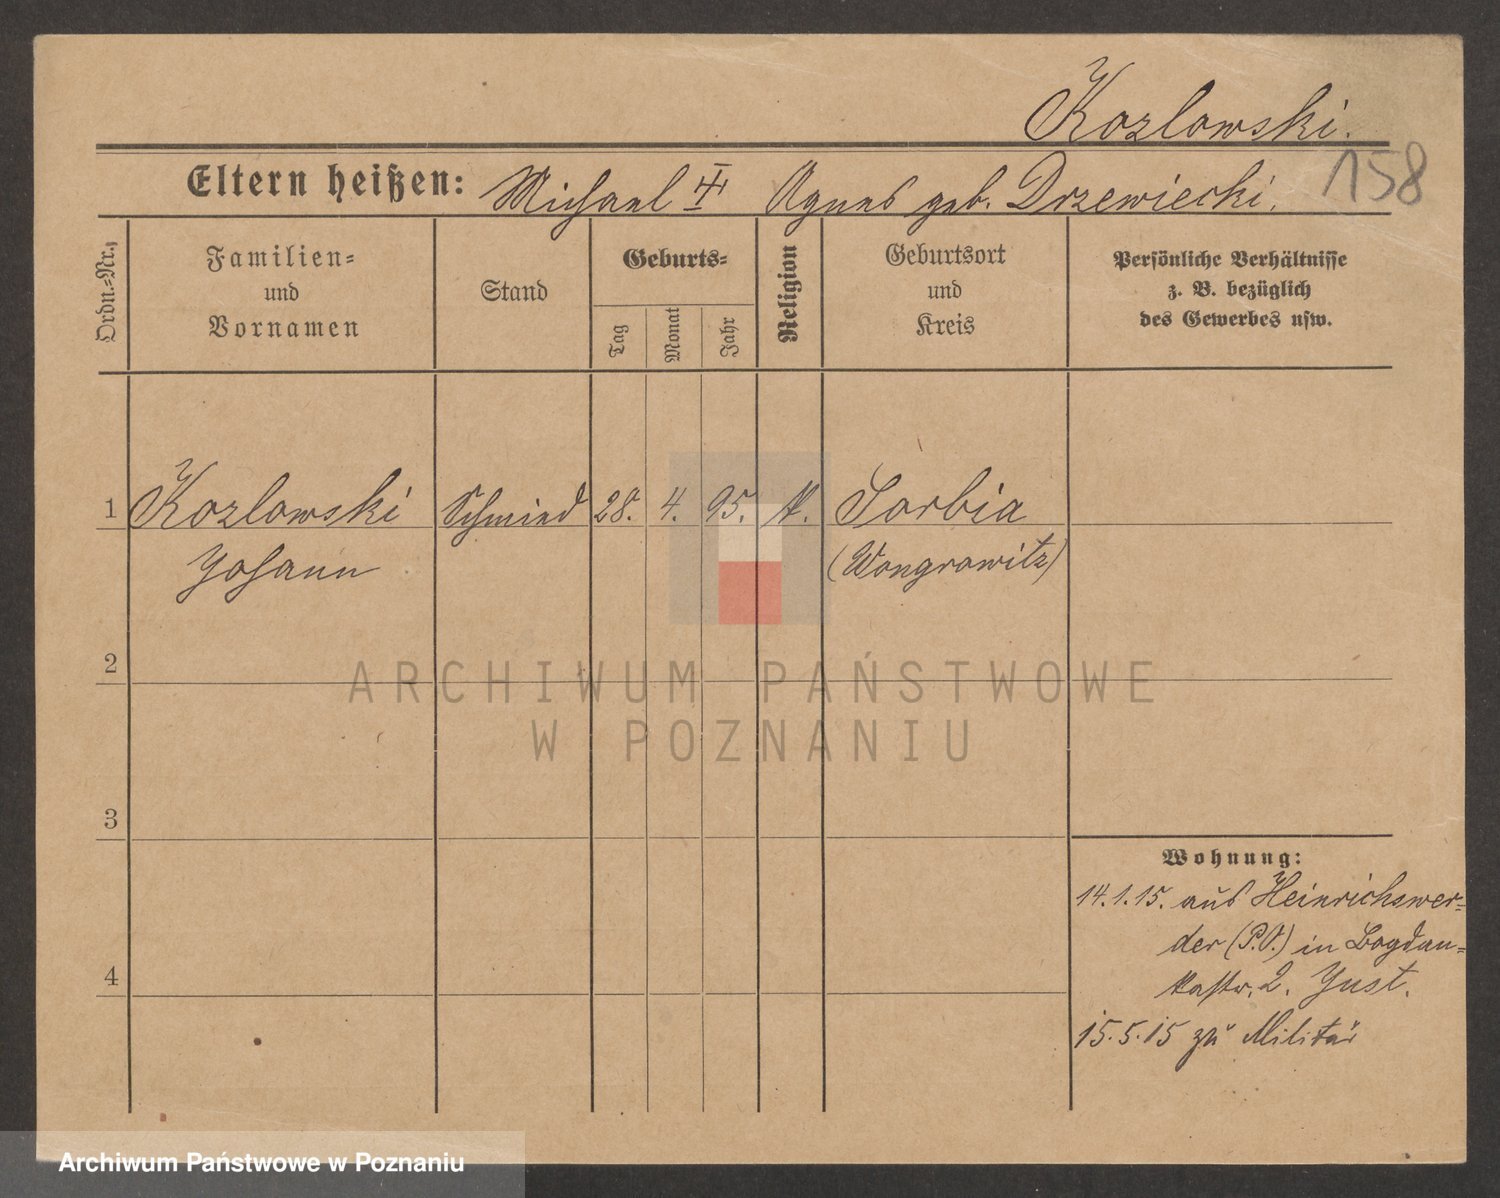 Kozlowski.
158
Eltern heißen: Michael Agnes geb. Drzewiecki.
Ordn.-Nr.
Familien-
und
Vornamen
Stand
Geburts-
Tag
Monat
Jahr
Religion
Geburtsort
und
Kreis
Persönliche Verhältnisse
z. B. bezüglich
des Gewerbes usw.
1 Kozlowski Schmied 28. 4. 95. k. Sarbia
Johann (Wongrowitz)
2
3
4
Wohnung:
14.1.15. aus Heinrichswer-
der (P.O.) in Bogdan-
kastr. 2. Just.
15.5.15 zu Militär
ARCHIWUM PAŃSTWOWE
W POZNANIU
Archiwum Państwowe w Poznaniu